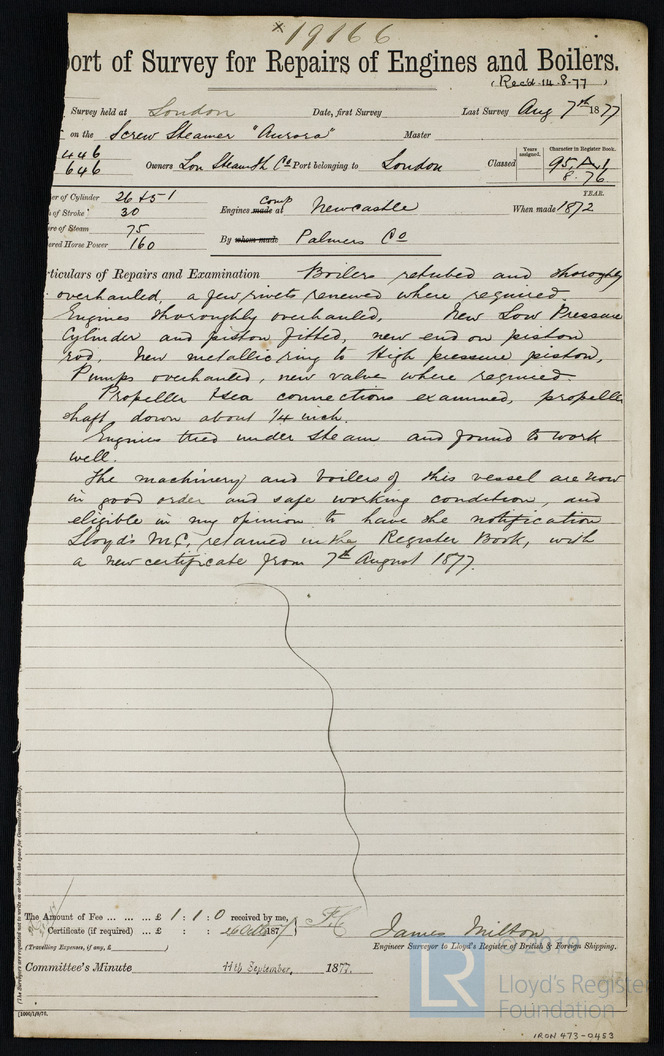 * 19166
ort of Survey for Repairs of Engines and Boilers.
(Rec'd. 14.8.77)
Survey held at London Date, first Survey Last Survey Aug 7th 1877
on the Screw Steamer "Aurora" Master
446
646 Owners Lon Steam Co Port belonging to London Classed Years assigned. Character in Register Book.
95 A.1
8.76
er of Cylinder 26 + 51
of Stroke 30
ure of Steam 75
ered Horse Power 160
Engines comp made at Newcastle
By whom made Palmers Co
YEAR.
When made 1872
ticulars of Repairs and Examination Boilers retubed and thoroughly
overhauled, a few rivets renewed where required.
Engines thoroughly overhauled, New Low Pressure
Cylinder and piston fitted, new end on piston
rod, New metallic ring to High pressure piston,
Pumps overhauled, new valve where required.
Propeller & sea connections examined, propeller
shaft down about 1/4 inch.
Engines tried under Steam and found to work
well.
The machinery and boilers of this vessel are now
in good order and safe working condition, and
eligible in my opinion to have the notification
Lloyd's M.C. retained in the Register Book, with
a new certificate from 7th August 1877.
(The Surveyors are requested not to write on or below the space for Committee's Minute.)
The Amount of Fee ... ... ... £ 1 : 1 : 0 received by me,
Certificate (if required) ... £ : : 187
(Travelling Expenses, if any, £ )
James Milton
Engineer Surveyor to Lloyd's Register of British & Foreign Shipping.
Committee's Minute 11th September, 1877.
© 2019
LR
Lloyd's Register
Foundation
IRON 473-0453